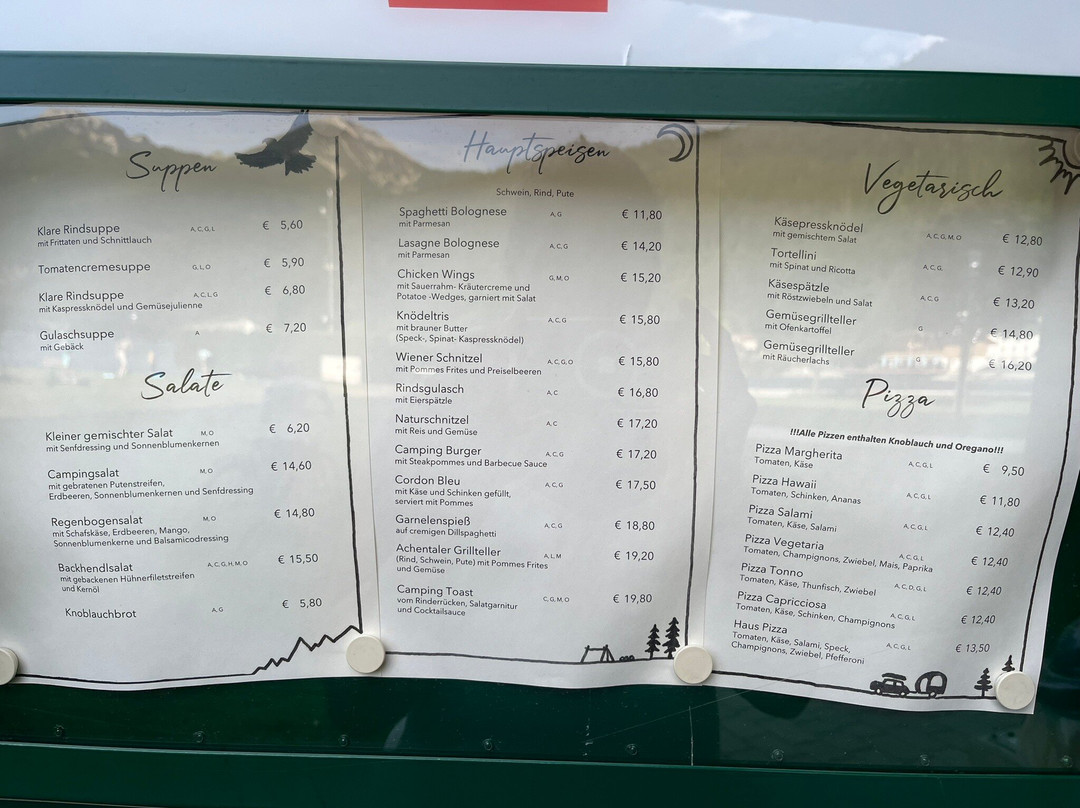 Suppen
Klare Rindsuppe A,C,G,L € 5,60
mit Frittaten und Schnittlauch
Tomatencremesuppe G,L,O € 5,90
Klare Rindsuppe A,C,L,G € 6,80
mit Kaspressknödel und Gemüsejulienne
Gulaschsuppe A € 7,20
mit Gebäck
Salate
Kleiner gemischter Salat M,O € 6,20
mit Senfdressing und Sonnenblumenkernen
Campingsalat M,O € 14,60
mit gebratenen Putenstreifen,
Erdbeeren, Sonnenblumenkernen und Senfdressing
Regenbogensalat M,O € 14,80
mit Schafskäse, Erdbeeren, Mango,
Sonnenblumenkerne und Balsamicodressing
Backhendlsalat A,C,G,H,M,O € 15,50
mit gebackenen Hühnerfiletstreifen
und Kernöl
Knoblauchbrot A,G € 5,80
Hauptspeisen
Schwein, Rind, Pute
Spaghetti Bolognese A,G € 11,80
mit Parmesan
Lasagne Bolognese A,C,G € 14,20
mit Parmesan
Chicken Wings G,M,O € 15,20
mit Sauerrahm- Kräutercreme und
Potatoe -Wedges, garniert mit Salat
Knödeltris A,C,G € 15,80
mit brauner Butter
(Speck-, Spinat- Kaspressknödel)
Wiener Schnitzel A,C,G,O € 15,80
mit Pommes Frites und Preiselbeeren
Rindsgulasch A,C € 16,80
mit Eierspätzle
Naturschnitzel A,C € 17,20
mit Reis und Gemüse
Camping Burger A,C,G € 17,20
mit Steakpommes und Barbecue Sauce
Cordon Bleu A,C,G € 17,50
mit Käse und Schinken gefüllt,
serviert mit Pommes
Garnelenspieß A,C,G € 18,80
auf cremigen Dillspaghetti
Achentaler Grillteller A,L,M € 19,20
(Rind, Schwein, Pute) mit Pommes Frites
und Gemüse
Camping Toast C,G,M,O € 19,80
vom Rinderrücken, Salatgarnitur
und Cocktailsauce
Vegetarisch
Käsepressknödel A,C,G,M,O € 12,80
mit gemischtem Salat
Tortellini A,C,G, € 12,90
mit Spinat und Ricotta
Käsespätzle A,C,G € 13,20
mit Röstzwiebeln und Salat
Gemüsegrillteller G € 14,80
mit Ofenkartoffel
Gemüsegrillteller G € 16,20
mit Räucherlachs
Pizza
!!!Alle Pizzen enthalten Knoblauch und Oregano!!!
Pizza Margherita A,C,G,L € 9,50
Tomaten, Käse
Pizza Hawaii A,C,G,L € 11,80
Tomaten, Schinken, Ananas
Pizza Salami A,C,G,L € 12,40
Tomaten, Käse, Salami
Pizza Vegetaria A,C,G,L € 12,40
Tomaten, Champignons, Zwiebel, Mais, Paprika
Pizza Tonno A,C,D,G,L € 12,40
Tomaten, Käse, Thunfisch, Zwiebel
Pizza Capricciosa A,C,G,L € 12,40
Tomaten, Käse, Schinken, Champignons
Haus Pizza A,C,G,L € 13,50
Tomaten, Käse, Salami, Speck,
Champignons, Zwiebel, Pfefferoni